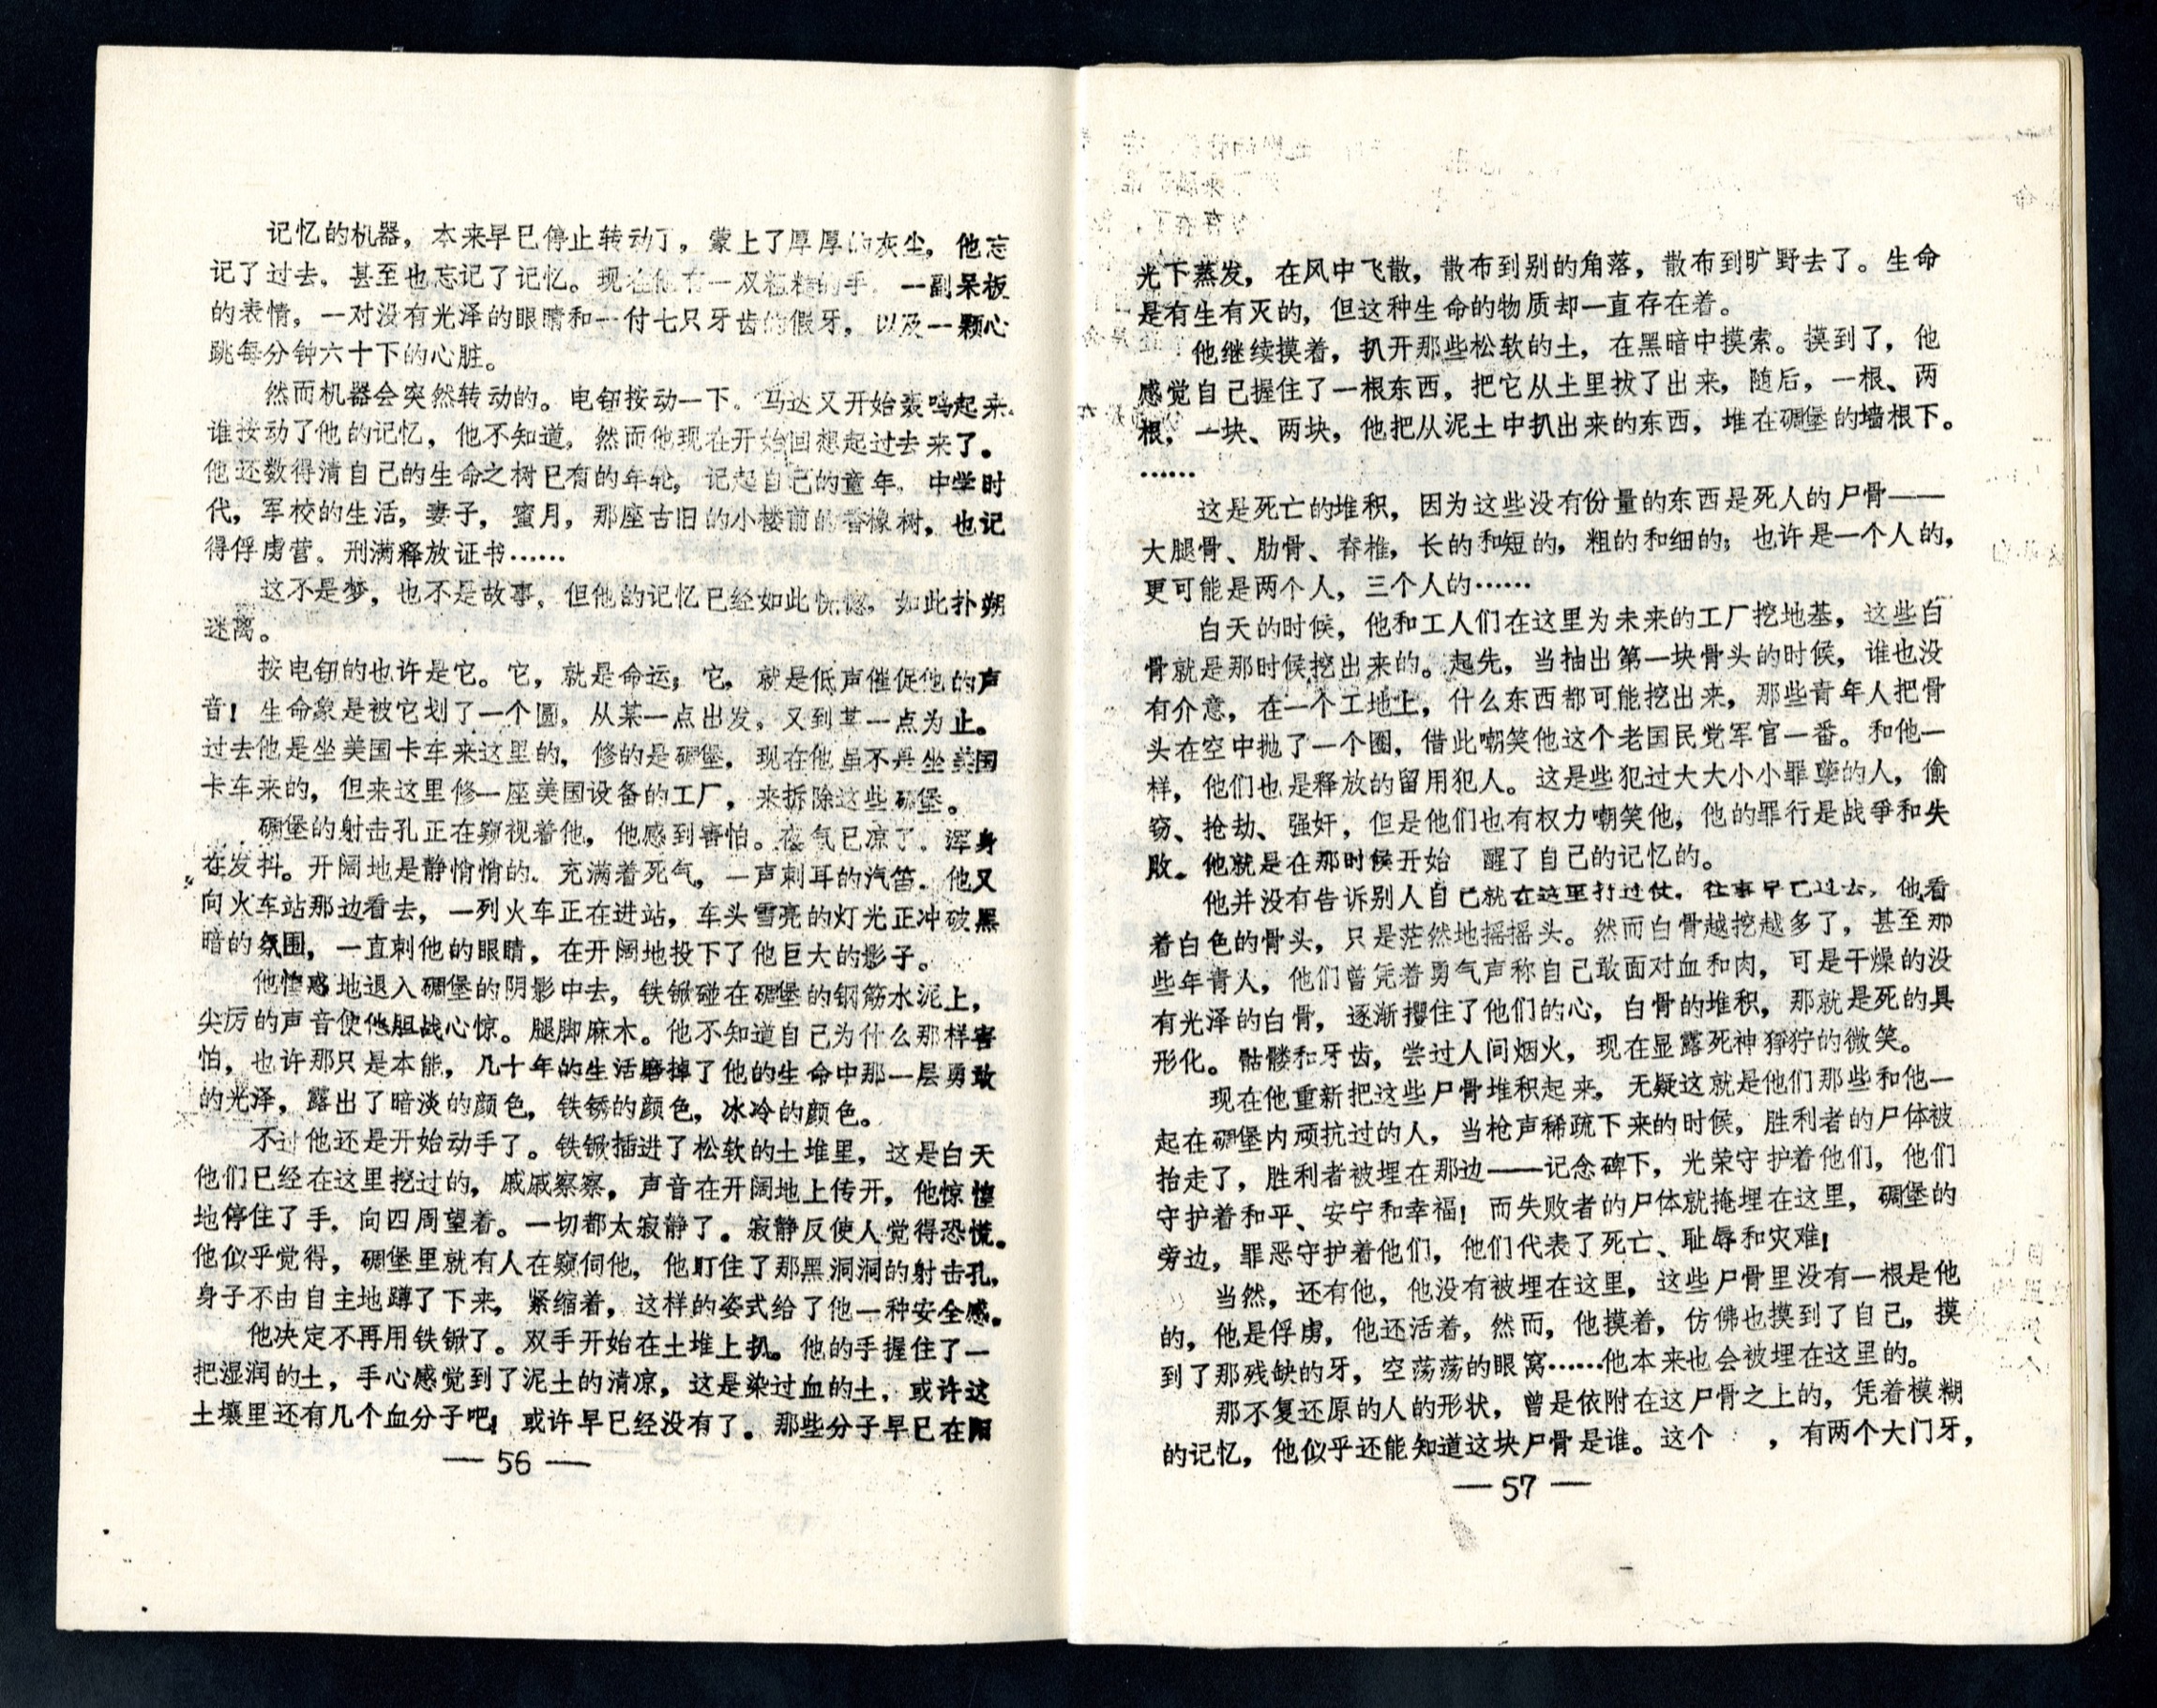 记忆的机器，本来早已停止转动了，蒙上了厚厚的灰尘，他忘
记了过去，甚至也忘记了记忆。现在他有一双粗糙的手，一副呆板
的表情，一对没有光泽的眼睛和一付七只牙齿的假牙，以及一颗心
跳每分钟六十下的心脏。
然而机器会突然转动的。电钮按动一下，马达又开始轰鸣起来。
谁按动了他的记忆，他不知道，然而他现在开始回想起过去来了。
他还数得清自己的生命之树已有的年轮，记起自己的童年，中学时
代，军校的生活，妻子，蜜月，那座古旧的小楼前的香橡树，也记
得俘虏营。刑满释放证书……
这不是梦，也不是故事，但他的记忆已经如此恍惚，如此扑朔
迷离。
按电钮的也许是它。它，就是命运；它，就是低声催促他的声
音！生命象是被它划了一个圆，从某一点出发，又到某一点为止。
过去他是坐美国卡车来这里的，修的是碉堡，现在他虽不是坐美国
卡车来的，但来这里修一座美国设备的工厂，来拆除这些碉堡。
碉堡的射击孔正在窥视着他，他感到害怕。夜气已凉了，浑身
在发抖。开阔地是静悄悄的，充满着死气，一声刺耳的汽笛，他又
向火车站那边看去，一列火车正在进站，车头雪亮的灯光正冲破黑
暗的氛围，一直刺他的眼睛，在开阔地投下了他巨大的影子。
他惶惑地退入碉堡的阴影中去，铁锹碰在碉堡的钢筋水泥上，
尖厉的声音使他胆战心惊。腿脚麻木。他不知道自己为什么那样害
怕，也许那只是本能，几十年的生活磨掉了他的生命中那一层勇敢
的光泽，露出了暗淡的颜色，铁锈的颜色，冰冷的颜色。
不过他还是开始动手了。铁锹插进了松软的土堆里，这是白天
他们已经在这里挖过的，戚戚察察，声音在开阔地上传开，他惊惶
地停住了手，向四周望着。一切都太寂静了。寂静反使人觉得恐慌。
他似乎觉得，碉堡里就有人在窥伺他，他盯住了那黑洞洞的射击孔，
身子不由自主地蹲了下来，紧缩着，这样的姿式给了他一种安全感。
他决定不再用铁锹了。双手开始在土堆上扒。他的手握住了一
把湿润的土，手心感觉到了泥土的清凉，这是染过血的土，或许这
土壤里还有几个血分子吧！或许早已经没有了。那些分子早已在阳
—56—
光下蒸发，在风中飞散，散布到别的角落，散布到旷野去了。生命
是有生有灭的，但这种生命的物质却一直存在着。
他继续摸着，扒开那些松软的土，在黑暗中摸索。摸到了，他
感觉自己握住了一根东西，把它从土里拔了出来，随后，一根、两
根，一块、两块，他把从泥土中扒出来的东西，堆在碉堡的墙根下。
……
这是死亡的堆积，因为这些没有份量的东西是死人的尸骨——
大腿骨、肋骨、脊椎，长的和短的，粗的和细的；也许是一个人的，
更可能是两个人，三个人的……
白天的时候，他和工人们在这里为未来的工厂挖地基，这些白
骨就是那时候挖出来的。起先，当抽出第一块骨头的时候，谁也没
有介意，在一个工地上，什么东西都可能挖出来，那些青年人把骨
头在空中抛了一个圈，借此嘲笑他这个老国民党军官一番。和他一
样，他们也是释放的留用犯人。这是些犯过大大小小罪孽的人，偷
窃、抢劫、强奸，但是他们也有权力嘲笑他，他的罪行是战争和失
败。他就是在那时候开始　醒了自己的记忆的。
他并没有告诉别人自己就在这里打过仗，往事早已过去，他看
着白色的骨头，只是茫然地摇摇头。然而白骨越挖越多了，甚至那
些年青人，他们曾凭着勇气声称自己敢面对血和肉，可是干燥的没
有光泽的白骨，逐渐攫住了他们的心，白骨的堆积，那就是死的具
形化。骷髅和牙齿，尝过人间烟火，现在显露死神狰狞的微笑。
现在他重新把这些尸骨堆积起来，无疑这就是他们那些和他一
起在碉堡内顽抗过的人，当枪声稀疏下来的时候，胜利者的尸体被
抬走了，胜利者被埋在那边——记念碑下，光荣守护着他们，他们
守护着和平、安宁和幸福！而失败者的尸体就掩埋在这里，碉堡的
旁边，罪恶守护着他们，他们代表了死亡、耻辱和灾难！
当然，还有他，他没有被埋在这里，这些尸骨里没有一根是他
的，他是俘虏，他还活着，然而，他摸着，仿佛也摸到了自己，摸
到了那残缺的牙，空荡荡的眼窝……他本来也会被埋在这里的。
那不复还原的人的形状，曾是依附在这尸骨之上的，凭着模糊
的记忆，他似乎还能知道这块尸骨是谁。这个　　，有两个大门牙，
—57—